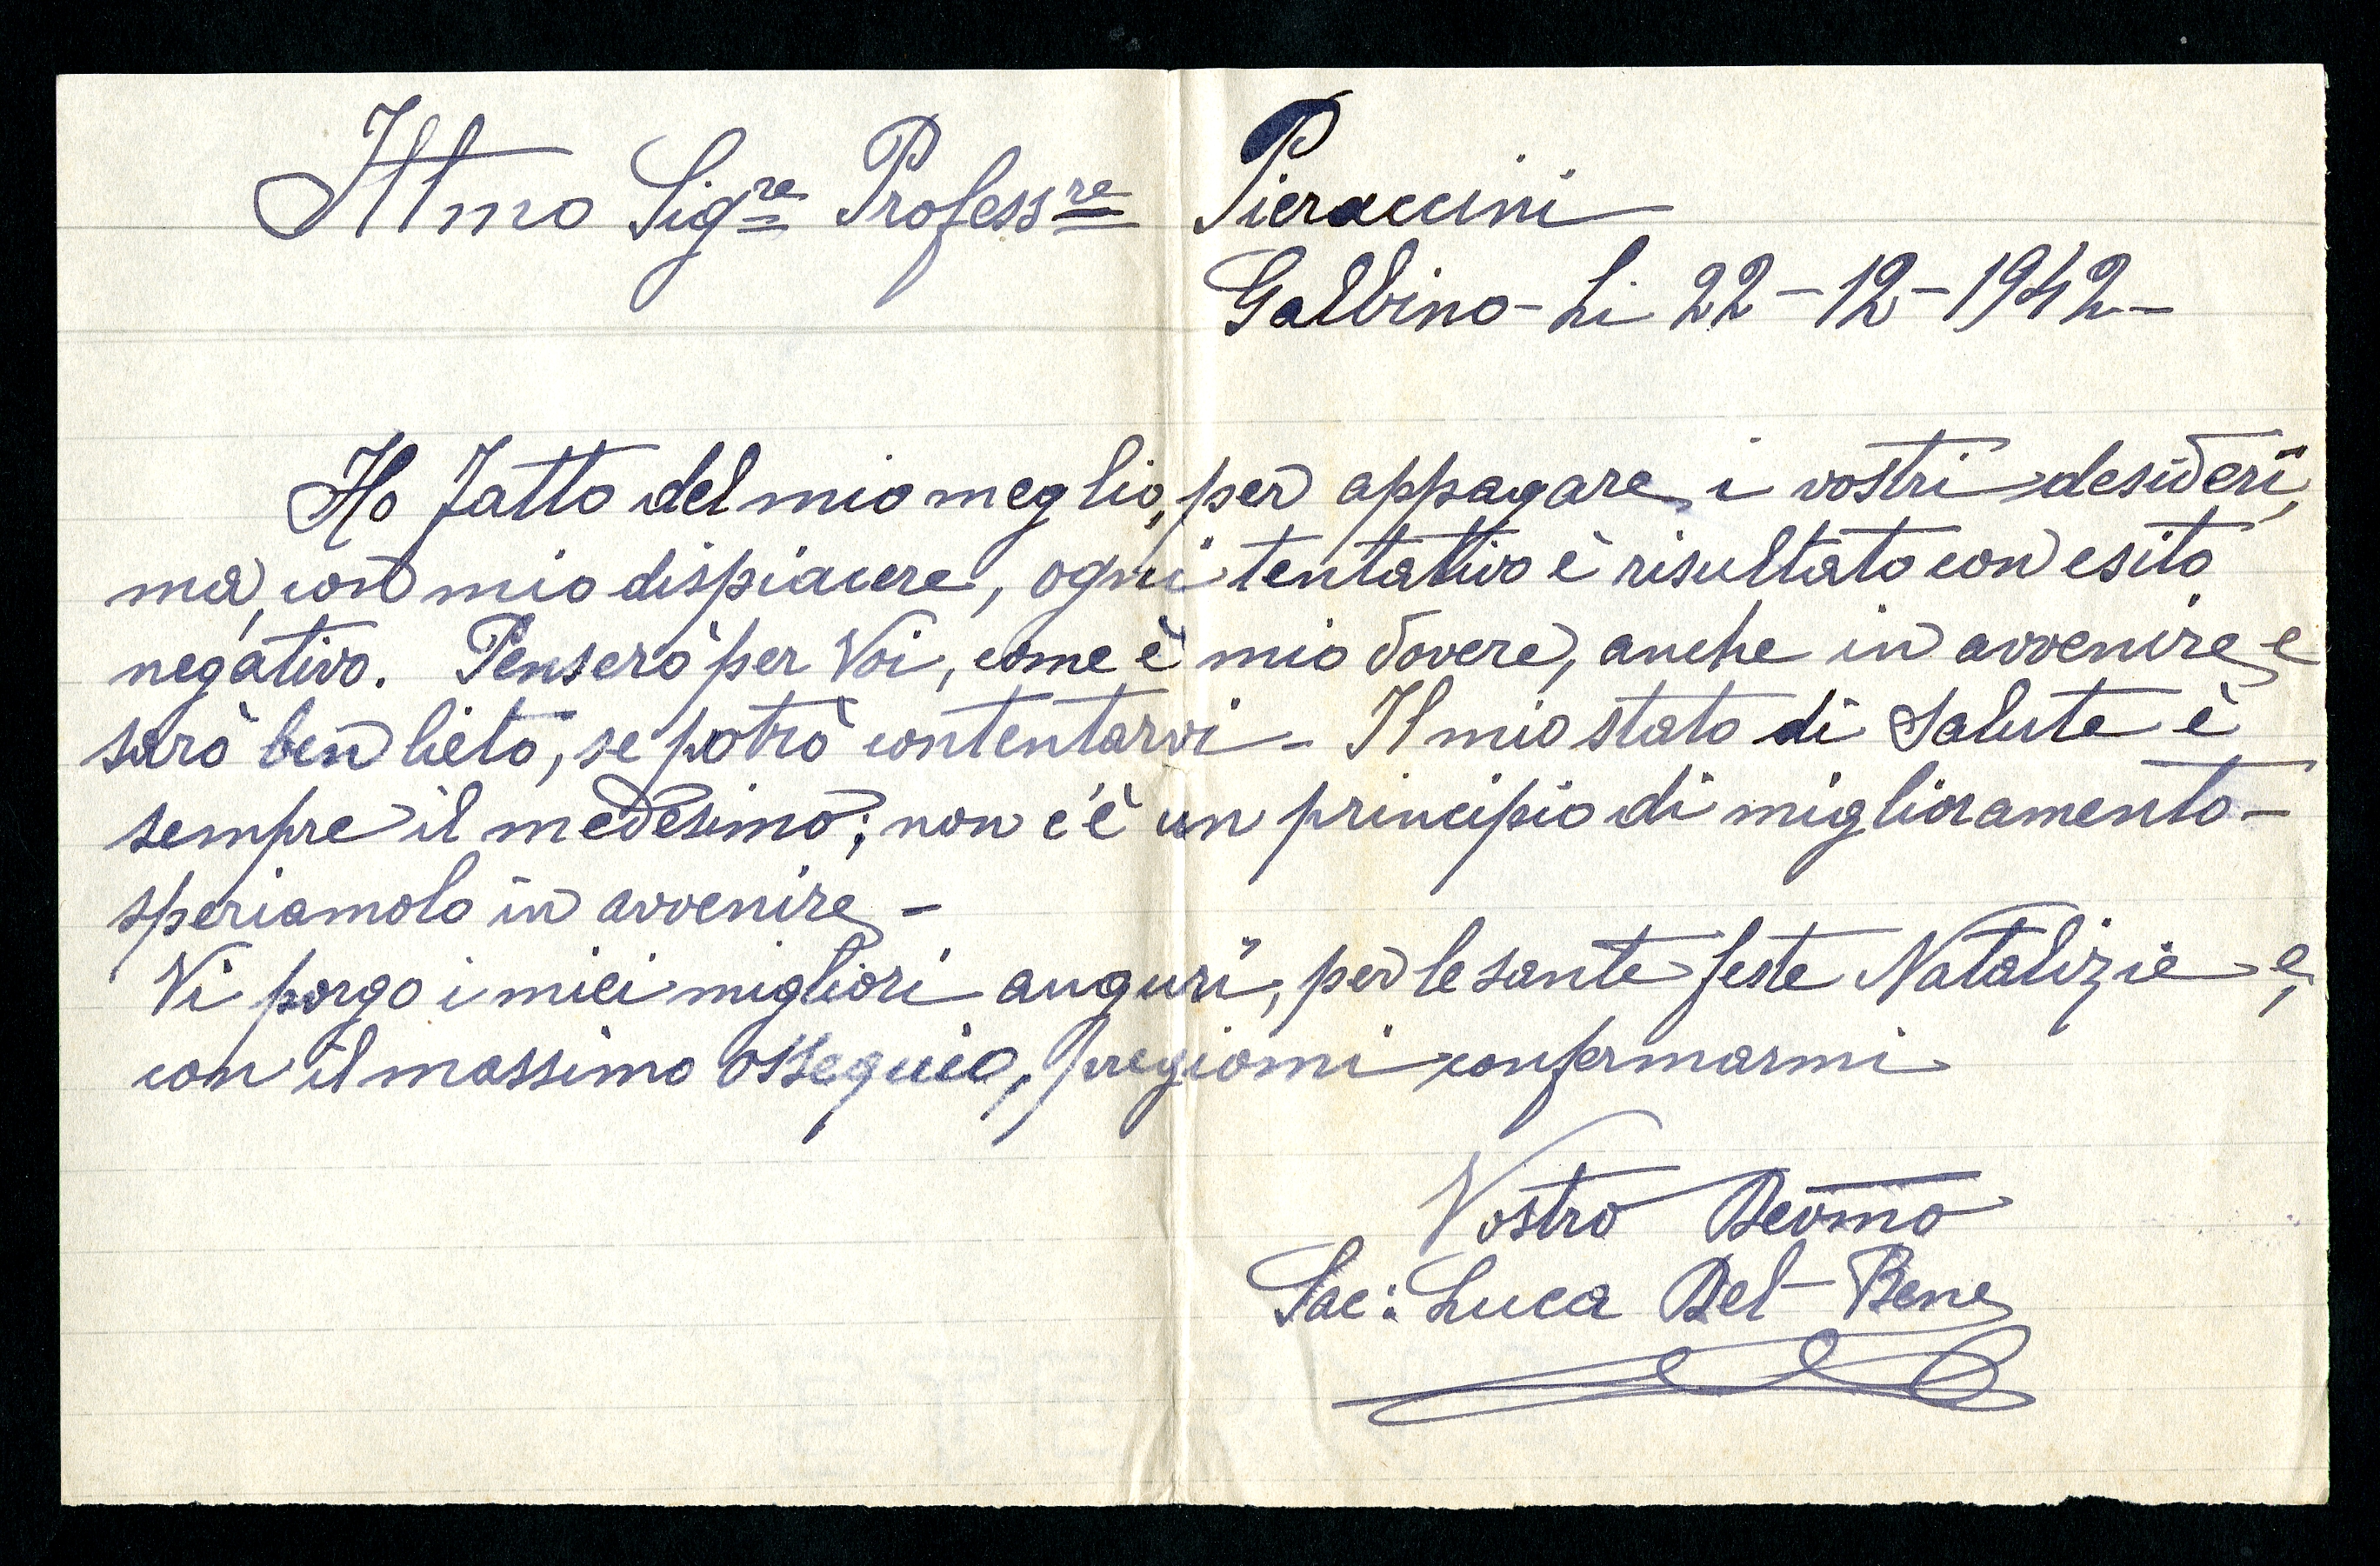 Illmo Sigre Professre Pieraccini
Galbino - Li 22 - 12 - 1942 -
Ho fatto del mio meglio, per appagare i vostri desideri,
ma, con mio dispiacere, ogni tentativo è risultato con esito
negativo. Penserò per Voi, come è mio dovere, anche in avvenire e
sarò ben lieto, se potrò contentarvi - Il mio stato di salute è
sempre il medesimo; non c'è un principio di miglioramento -
speriamolo in avvenire -
Vi porgo i miei migliori auguri, per le sante feste Natalizie e,
con il massimo ossequio, pregiomi confermarmi
Vostro Devmo
Sac: Luca Del Bene